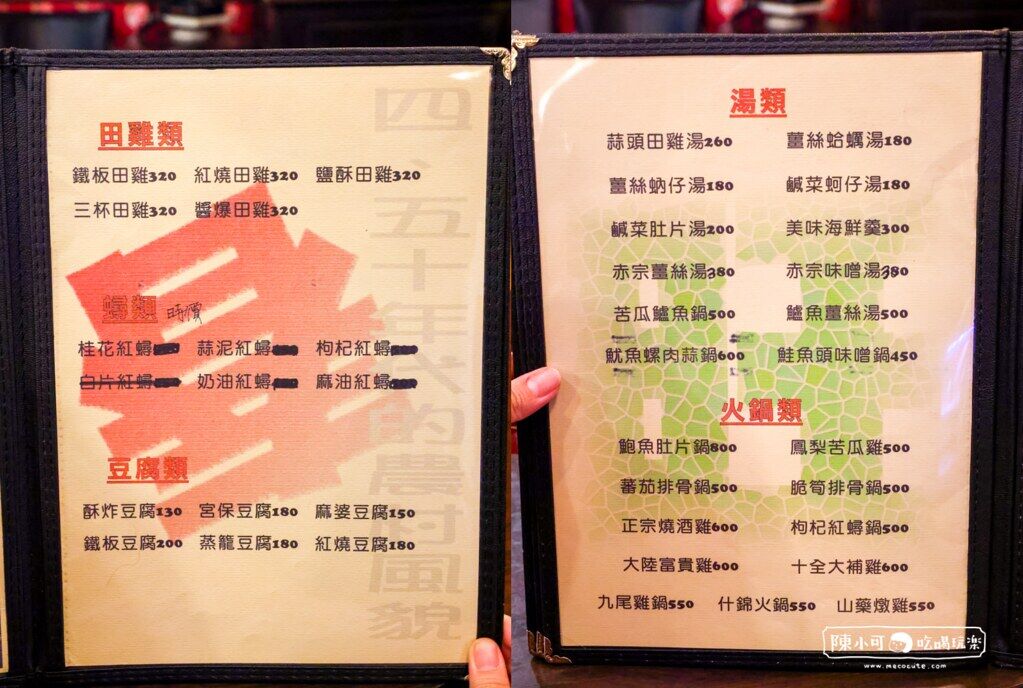 田雞類
鐵板田雞320 紅燒田雞320 鹽酥田雞320
三杯田雞320 醬爆田雞320
蟳類 時價
桂花紅蟳 蒜泥紅蟳 枸杞紅蟳
白片紅蟳 奶油紅蟳 麻油紅蟳
豆腐類
酥炸豆腐130 宮保豆腐180 麻婆豆腐150
鐵板豆腐200 蒸龍豆腐180 紅燒豆腐180
四、五十年代的農村風貌
湯類
蒜頭田雞湯260 薑絲蛤蠣湯180
薑絲蚋仔湯180 鹹菜蚵仔湯180
鹹菜肚片湯200 美味海鮮羹300
赤宗薑絲湯380 赤宗味噌湯380
苦瓜鱸魚鍋500 鱸魚薑絲湯500
魷魚螺肉蒜鍋600 鮭魚頭味噌鍋450
火鍋類
鮑魚肚片鍋800 鳳梨苦瓜雞500
蕃茄排骨鍋500 脆筍排骨鍋500
正宗燒酒雞600 枸杞紅蟳鍋500
大陸富貴雞600 十全大補雞600
九尾雞鍋550 什錦火鍋550 山藥燉雞550
陳小可 吃喝玩樂
www.mecocute.com